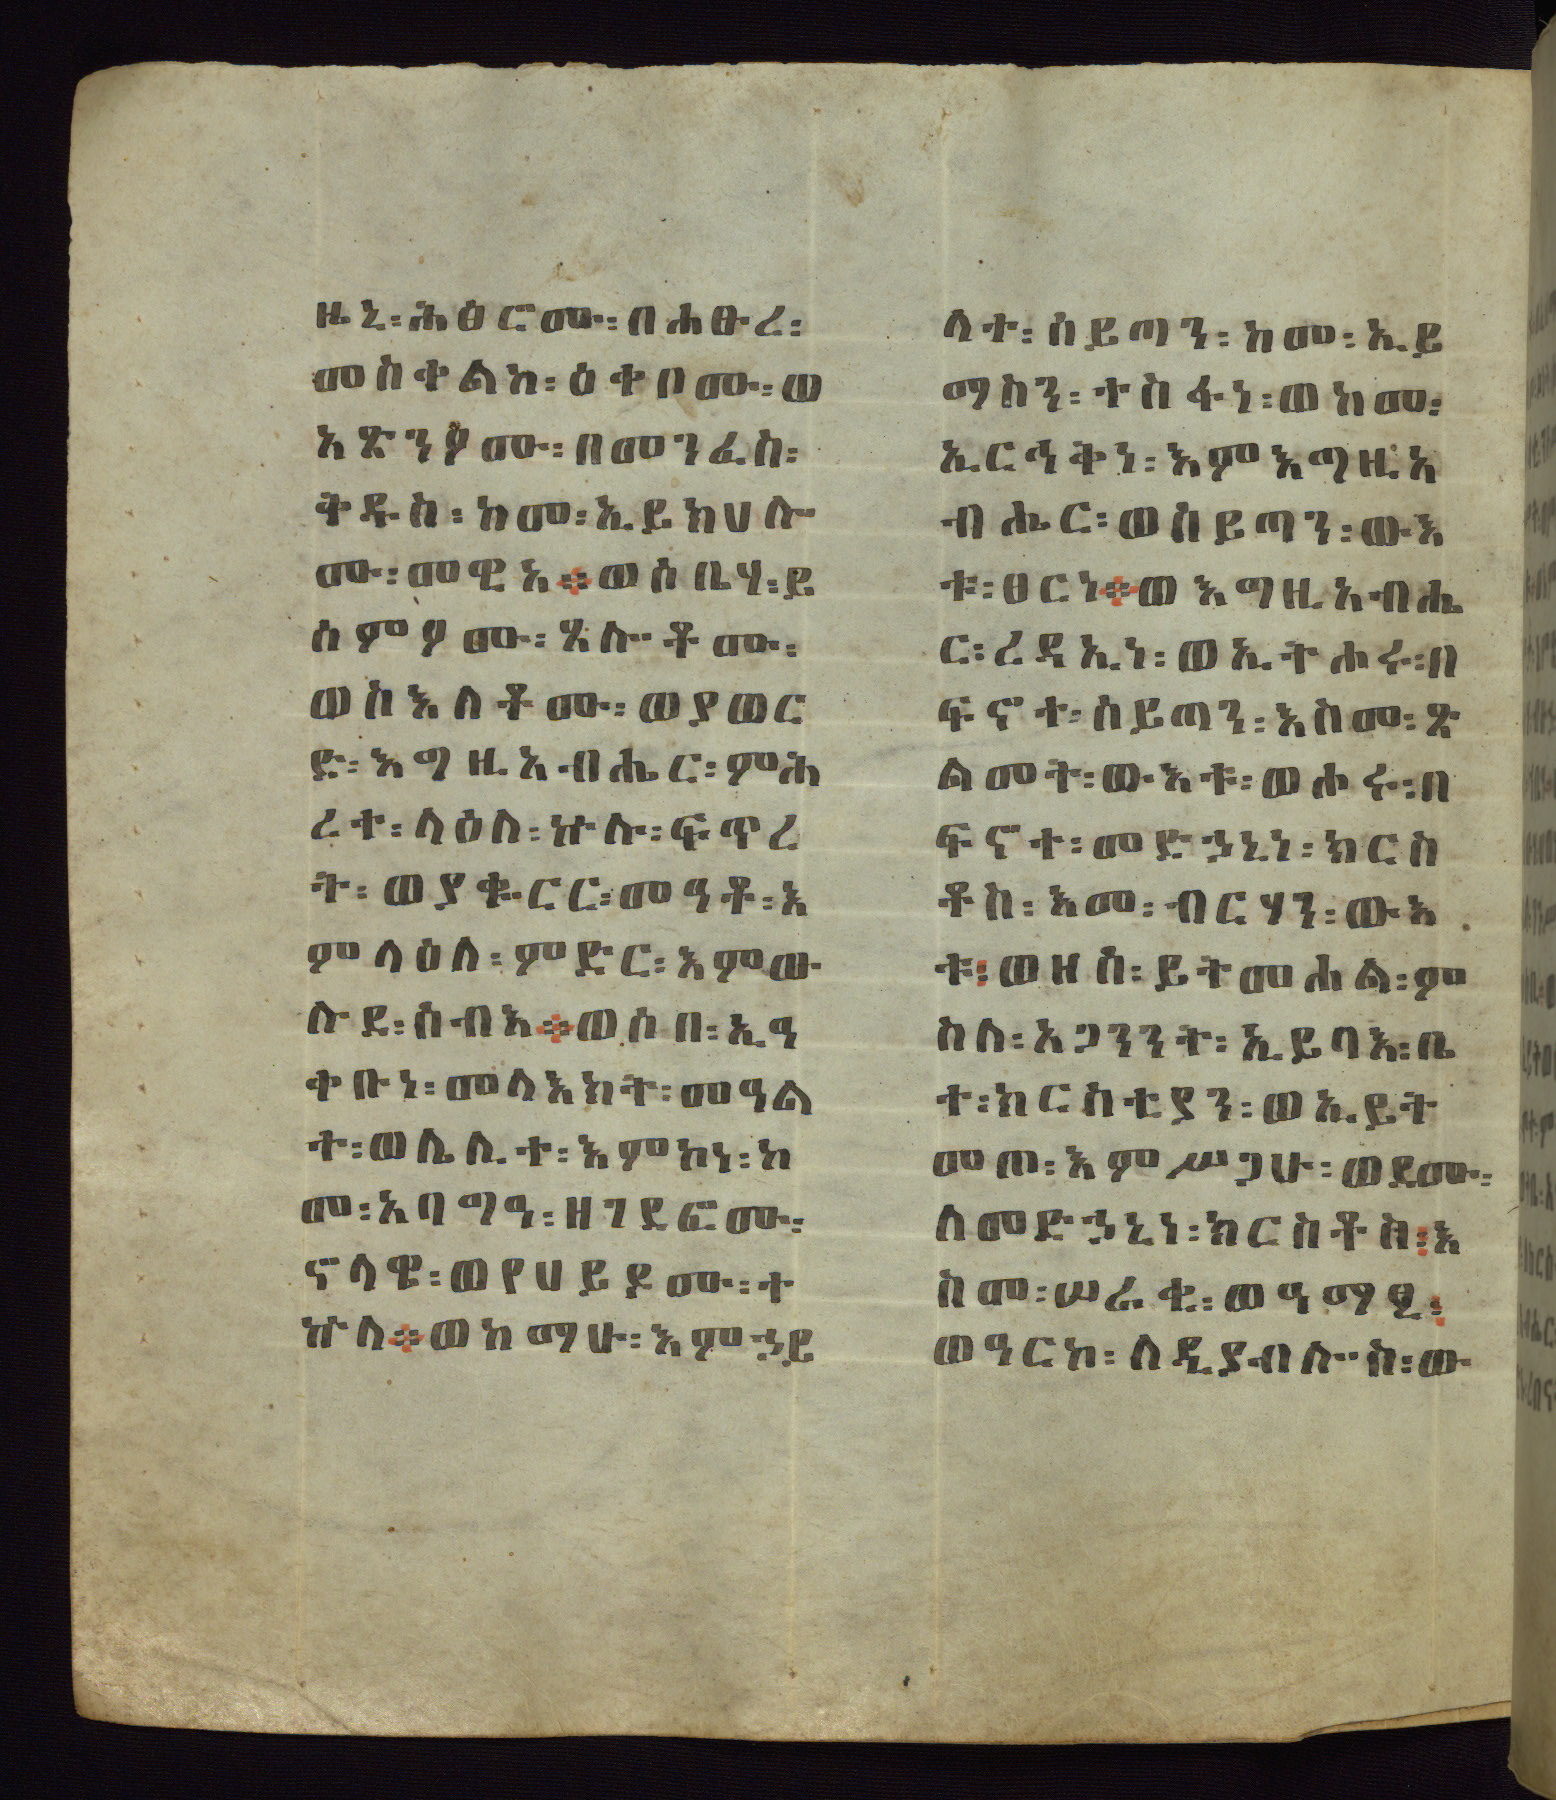 ዜኒ፡ሕፅሮሙ፡በሐፁረ፡
መስቀልከ፡ዕቀቦሙ፡ወ
አጽንዖሙ፡በመንፈስ፡
ቅዱስ፡ከመ፡ኢይክሀሉ
ሙ፡መዊአ።ወሶቤሃ፡ይ
ሰምዖሙ፡ጸሎቶሙ፡
ወስእለቶሙ፡ወያወር
ድ፡እግዚአብሔር፡ምሕ
ረተ፡ላዕለ፡ኵሉ፡ፍጥረ
ት፡ወያቁርር፡መዓቶ፡እ
ምላዕለ፡ምድር፡እምው
ሉደ፡ሰብእ።ወሶበ፡ኢዓ
ቀቡነ፡መላእክት፡መዓል
ተ፡ወሌሊተ፡እምከነ፡ከ
መ፡አባግዓ፡ዘገደፎሙ፡
ኖላዊ፡ወየሀይዶሙ፡ተ
ኵላ።ወከማሁ፡እምኃይ
ላተ፡ሰይጣን፡ከመ፡ኢይ
ማስን፡ተስፋነ፡ወከመ፡
ኢርኁቅነ፡እምእግዚአ
ብሔር፡ወሰይጣን፡ውእ
ቱ፡ፀርነ።ወእግዚአብሔ
ር፡ረዳኢነ፡ወኢትሐሩ፡በ
ፍኖተ፡ሰይጣን፡እስመ፡ጽ
ልመት፡ውእቱ፡ወሐሩ፡በ
ፍኖተ፡መድኃኒነ፡ክርስ
ቶስ፡እመ፡ብርሃን፡ውእ
ቱ፡ወዘሰ፡ይትመሐል፡ም
ስለ፡አጋንንት፡ኢይባእ፡ቤ
ተ፡ክርስቲያን፡ወኢይት
መጦ፡እምሥጋሁ፡ወደሙ፡
ለመድኃኒነ፡ክርስቶስ፡እ
ስመ፡ሠራቂ፡ወዓማፂ፡
ወዓርከ፡ለዲያብሎስ፡ው